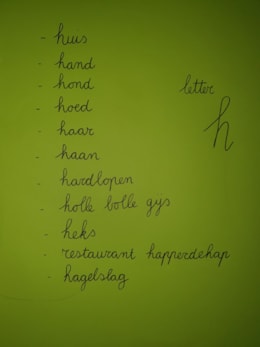 - huis
- hand
- hond
- hoed
- haar
- haan
- hardlopen
- holle bolle gijs
- heks
- restaurant happerdehap
- hagelslag
letter
h